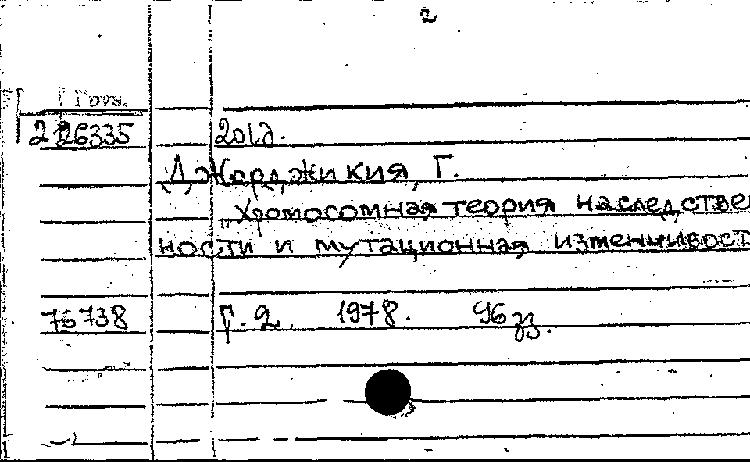 2
Груз.
226335
Джорджикия, Г.
Хромосомная теория наследствен
ности и мутационная изменчивост
76738 1978. 96 გვ.